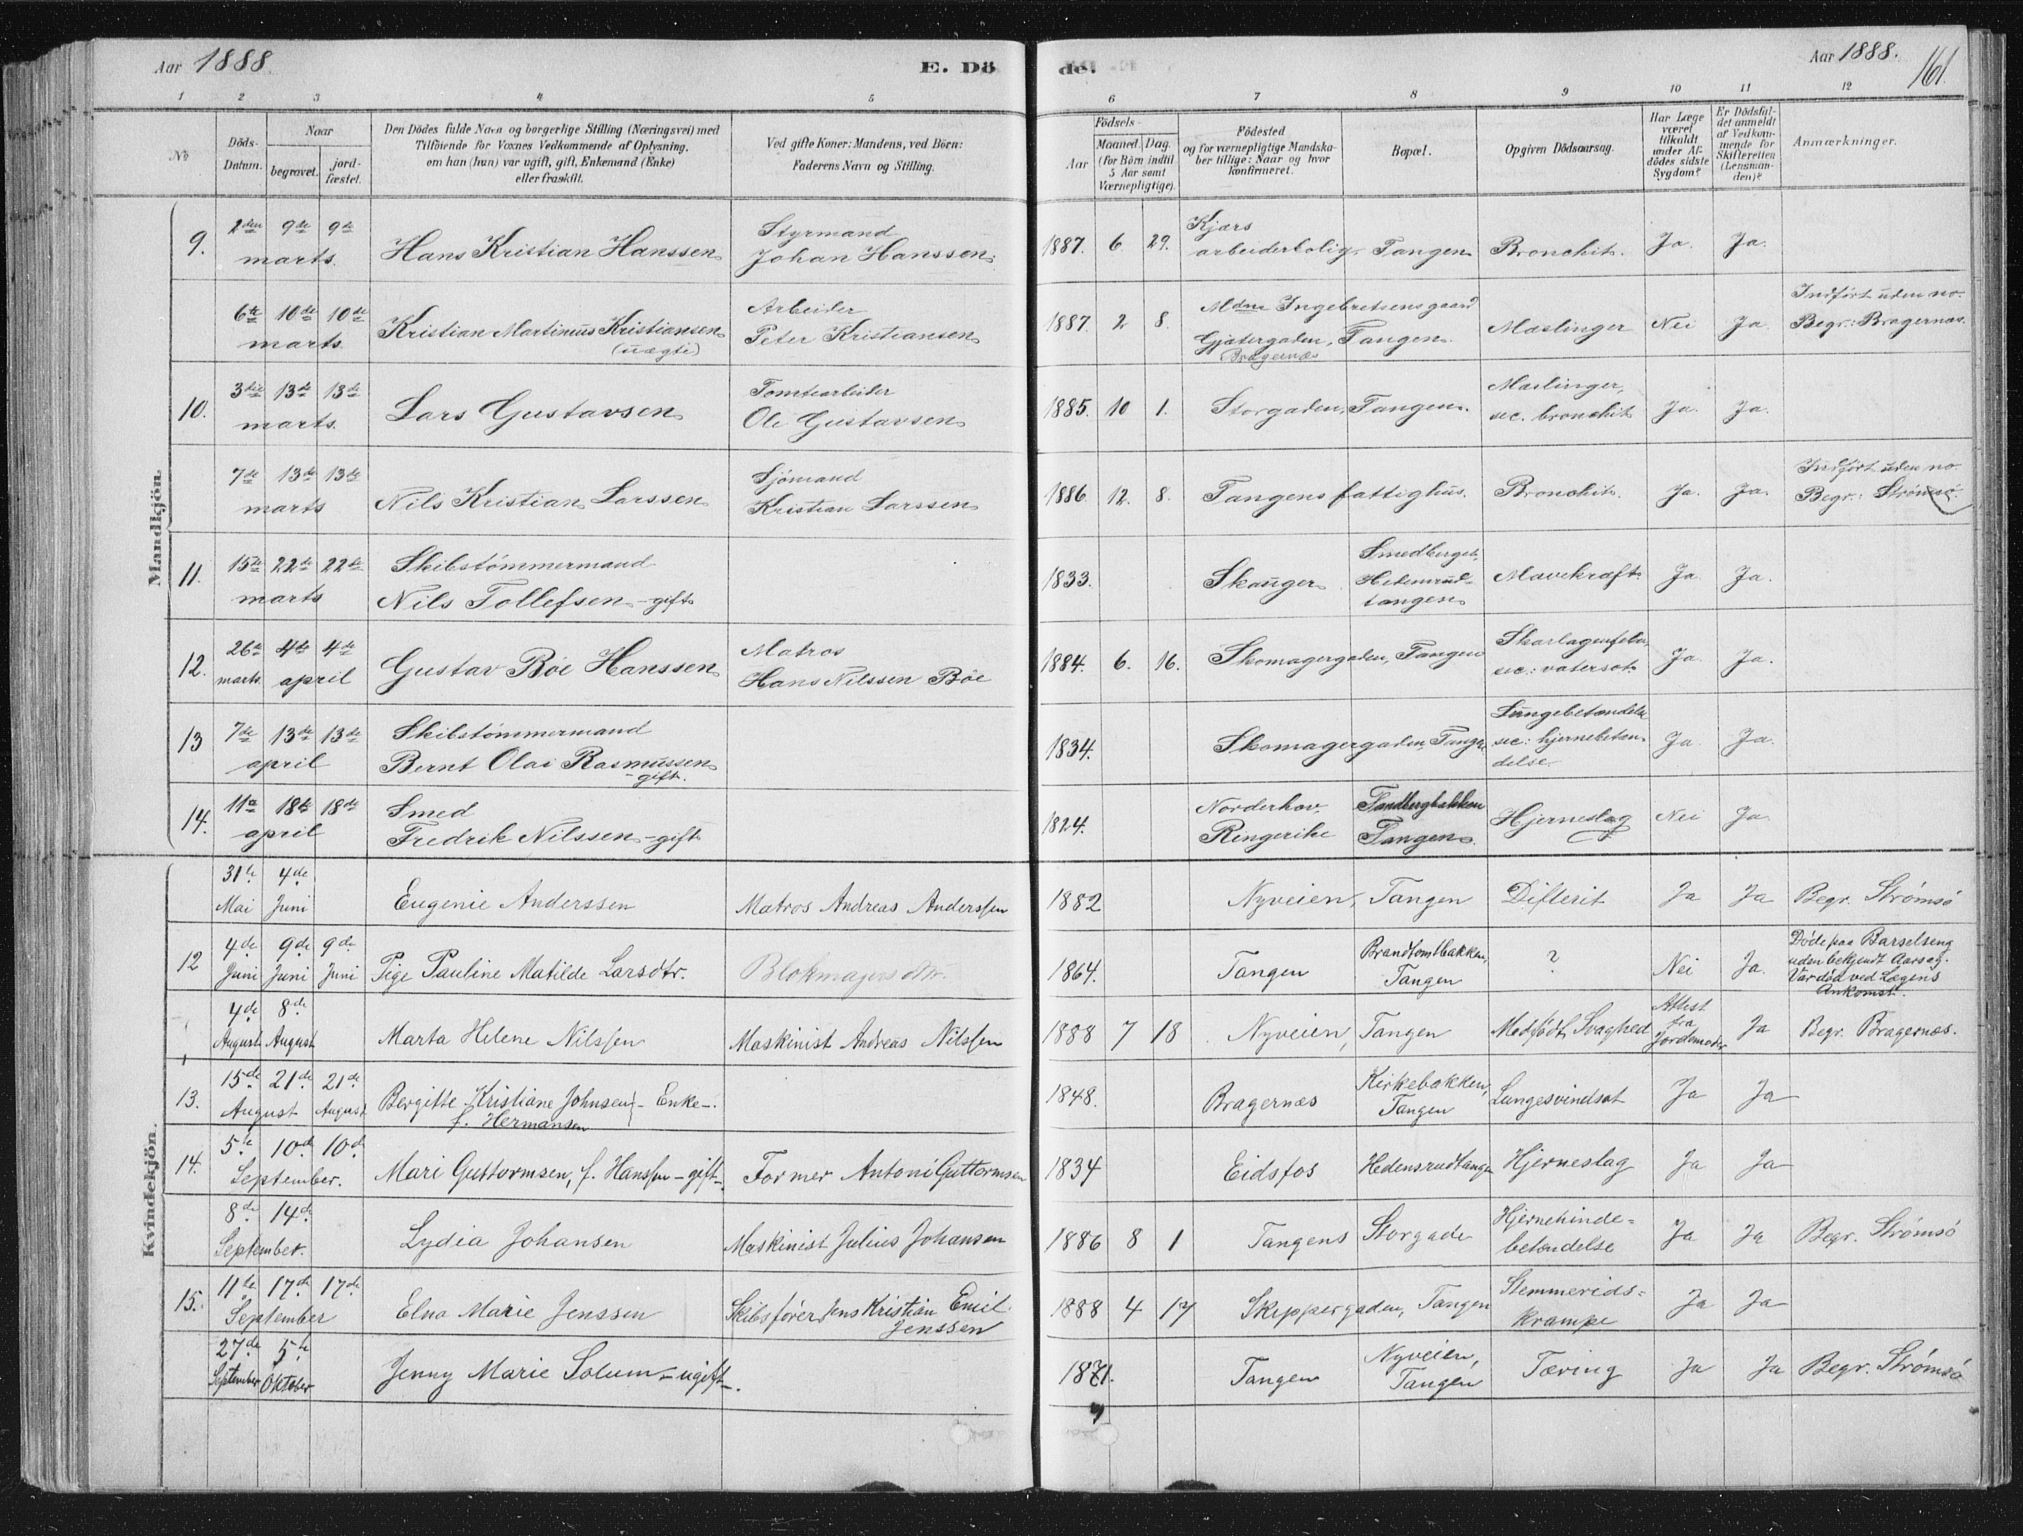 Aar 1888.
E. Dö
de.
Aar 1888.
161.
1 2 3 4 5 6 7 8 9 10 11 12
No
Döds-Datum.
Naar
begravet.
jord-fæstet.
Den Dödes fulde Navn og borgerlige Stilling (Næringsvei) med
Tilföiende for Voxnes Vedkommende af Oplysning,
om han (hun) var ugift, gift, Enkemand (Enke)
eller fraskilt.
Ved gifte Koner: Mandens, ved Börn:
Faderens Navn og Stilling.
Födsels-
Aar
Maaned. Dag.
(for Börn indtil
5 Aar samt
Værnepligtige).
Födested
og for værnepligtige Mandska-
ber tillige: Naar og hvor
konfirmeret.
Bopæl.
Opgiven Dödsaarsag.
Har Læge
været
tilkaldt
under Af-
dödes sidste
Sygdom?
Er Dödsfal-
det anmeldt
af Vedkom-
mende for
Skifteretten
(Lensman-
den)?
Anmærkninger.
Mandkjön.
9. 2den marts 9de 9de Hans Kristian Hanssen Styrmand Johan Hanssen 1887. 6 29. Kjærs arbeiderbolig, Tangen Bronchit. Ja. Ja.
6te marts 10de 10de Kristian Martinius Kristiansen (uægte) Arbeider Peter Kristiansen 1887. 2 8. Mdme Ingebretsens gaard Gjætergaden, Tangen. Bragernæs Mæslinger Nei Ja Indført uden no. Begr: Bragernæs.
10. 3die marts 13de 13de Lars Gustavsen Tomtearbeider Ole Gustavsen 1885. 10 1. Storgaden, Tangen. Mæslinger, sec. bronchit Ja. Ja.
7de marts 13de 13de Nils Kristian Larssen Sjömand Kristian Larssen 1886 12. 8. Tangens fattighus. Bronchit. Ja. Ja. Indført uden no Begr: Strømsö
11. 15de marts 22de 22de Skibstømmermand Nils Tollefsen - gift 1833. Skauger Smedberget, Hedensrud-tangen Mavekræft Ja. Ja.
12. 26de marts 4de april 4de Gustav Böe Hanssen Matros Hans Nilssen Böe 1884. 6. 16. Skomagergaden, Tangen Skarlagensfeber, sec: vatersot. Ja. Ja.
13 7de april 13de 13de Skibstømmermand Bernt Olai Rasmussen - gift. 1834. Skomagergaden Tangen Lungebetændelse sec: hjernebetæn-delse Ja. Ja.
14. 11te april 18de 18de Smed Fredrik Nilssen - gift 1824. Norderhov, Ringerike Tandbergbakken Tangen Hjerneslag Nei Ja.
Kvindekjön.
31te Mai 4de Juni Eugenie Anderssen Matros Andreas Anderssen 1882 Nyveien, Tangen Difterit Ja Ja Begr. Strømsö
12 4de Juni 9de Juni 9de Juni Pige Pauline Matilde Larsdtr. Blokmagers dtr. 1864. Tangen Brandtomtbakken, Tangen ? Nei Ja Döde paa Barselseng uden bekjendt Aarsag. Var död ved Lægens Ankomst.
4de August 8de August Marta Helene Nilssen Maskinist Andreas Nilssen 1888 7 18 Nyveien, Tangen Medfødt Svaghed Attest fra Jordemoder Ja Begr. Bragernæs.
13. 15de August 21de 21de August Bergitte Kristiane Johnsen f. Hermansen - Enke -. 1848. Bragernæs Kirkebakken, Tangen Lungesvindsot Ja Ja
14. 5te September. 10de 10de Mari Guttormsen, f. Hanssen - gift -. Former Antoni Guttormsen 1834 Eidsfos Hedensrudtangen Hjerneslag Ja Ja
8de September. 14de Lydia Johansen Maskinist Julius Johansen 1886 8 1 Tangens Storgade Hjernehinde-betændelse Ja Ja Begr. Strømsö
15. 11te September 17de 17de Elna Marie Jenssen Skibsfører Jens Kristian Emil Jenssen 1888 4 17 Skippergaden, Tangen Stemmerids-krampe Ja Ja
27de September 5te Oktober Jenny Marie Solum - ugift -. 1871. Tangen Nyveien, Tangen Tæring Ja Ja Begr. Strømsö